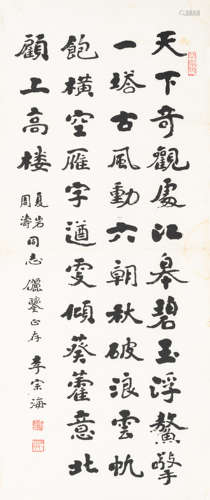 天下奇觀處江皋碧玉浮鰲擎
一塔古風動六朝秋破浪雲帆
飽橫空雁字遒雯傾葵藿意北
顧上高樓
夏岩
周濤同志儷鑒正存 李宗海